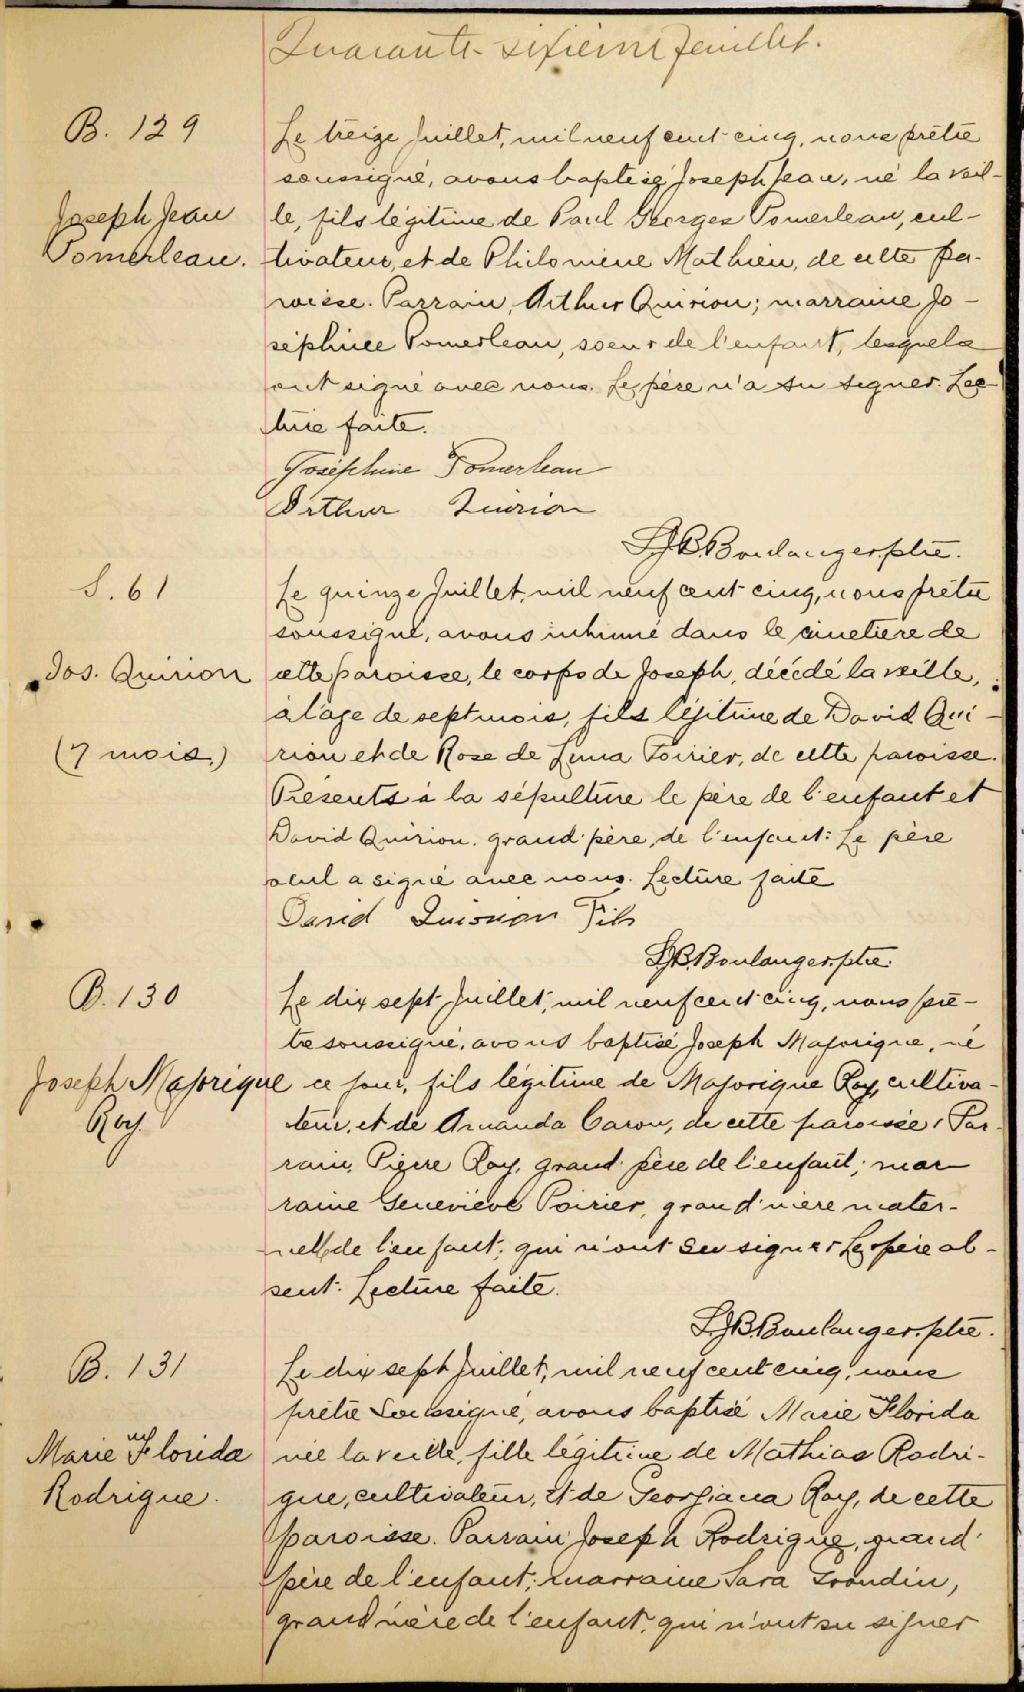 Quarante-sixième feuillet.
B. 129
Joseph Jean
Pomerleau.
Le treize Juillet, mil neuf cent cinq, nous prêtre
soussigné, avons baptisé Joseph Jean, né la veil-
le, fils légitime de Paul Georges Pomerleau, cul-
tivateur, et de Philomène Mathieu, de cette pa-
roisse. Parrain, Arthur Quirion; marraine Jo-
séphine Pomerleau, soeur de l'enfant, lesquels
ont signé avec nous. Le père n'a su signer. Lec-
ture faite.
Joséphine Pomerleau
Arthur Quirion
L.J.B. Boulanger, ptre.
S. 61
Jos. Quirion
(7 mois.)
Le quinze Juillet, mil neuf cent cinq, nous prêtre
soussigné, avons inhumé dans le cimetière de
cette paroisse, le corps de Joseph, décédé la veille,
à l'age de sept mois, fils légitime de David Qui-
rion et de Rose de Lima Poirier, de cette paroisse.
Présents à la sépulture le père de l'enfant et
David Quirion, grand'père de l'enfant: Le père
seul a signé avec nous. Lecture faite
David Quirion Fils
L.J.B. Boulanger, ptre.
B. 130
Joseph Majorique
Roy.
Le dix sept Juillet, mil neuf cent cinq, nous prê-
tre soussigné, avons baptisé Joseph Majorique, né
ce jour, fils légitime de Majorique Roy, cultiva-
teur, et de Amanda Caron, de cette paroisse, Par-
rain, Pierre Roy, grand'père de l'enfant; mar-
raine Geneviève Poirier, grand'mère mater-
nelle de l'enfant, qui n'ont su signer Le père ab-
sent. Lecture faite.
L.J.B. Boulanger, ptre.
B. 131
Marie Florida
Rodrigue.
Le dix sept Juillet, mil neuf cent cinq, nous
prêtre soussigné, avons baptisé Marie Florida
née la veille, fille légitime de Mathias Rodri-
gue, cultivateur, et de Georgiana Roy, de cette
paroisse. Parrain Joseph Rodrigue, grand'
père de l'enfant; marraine Sara Grondin,
grand'mère de l'enfant, qui n'ont su signer